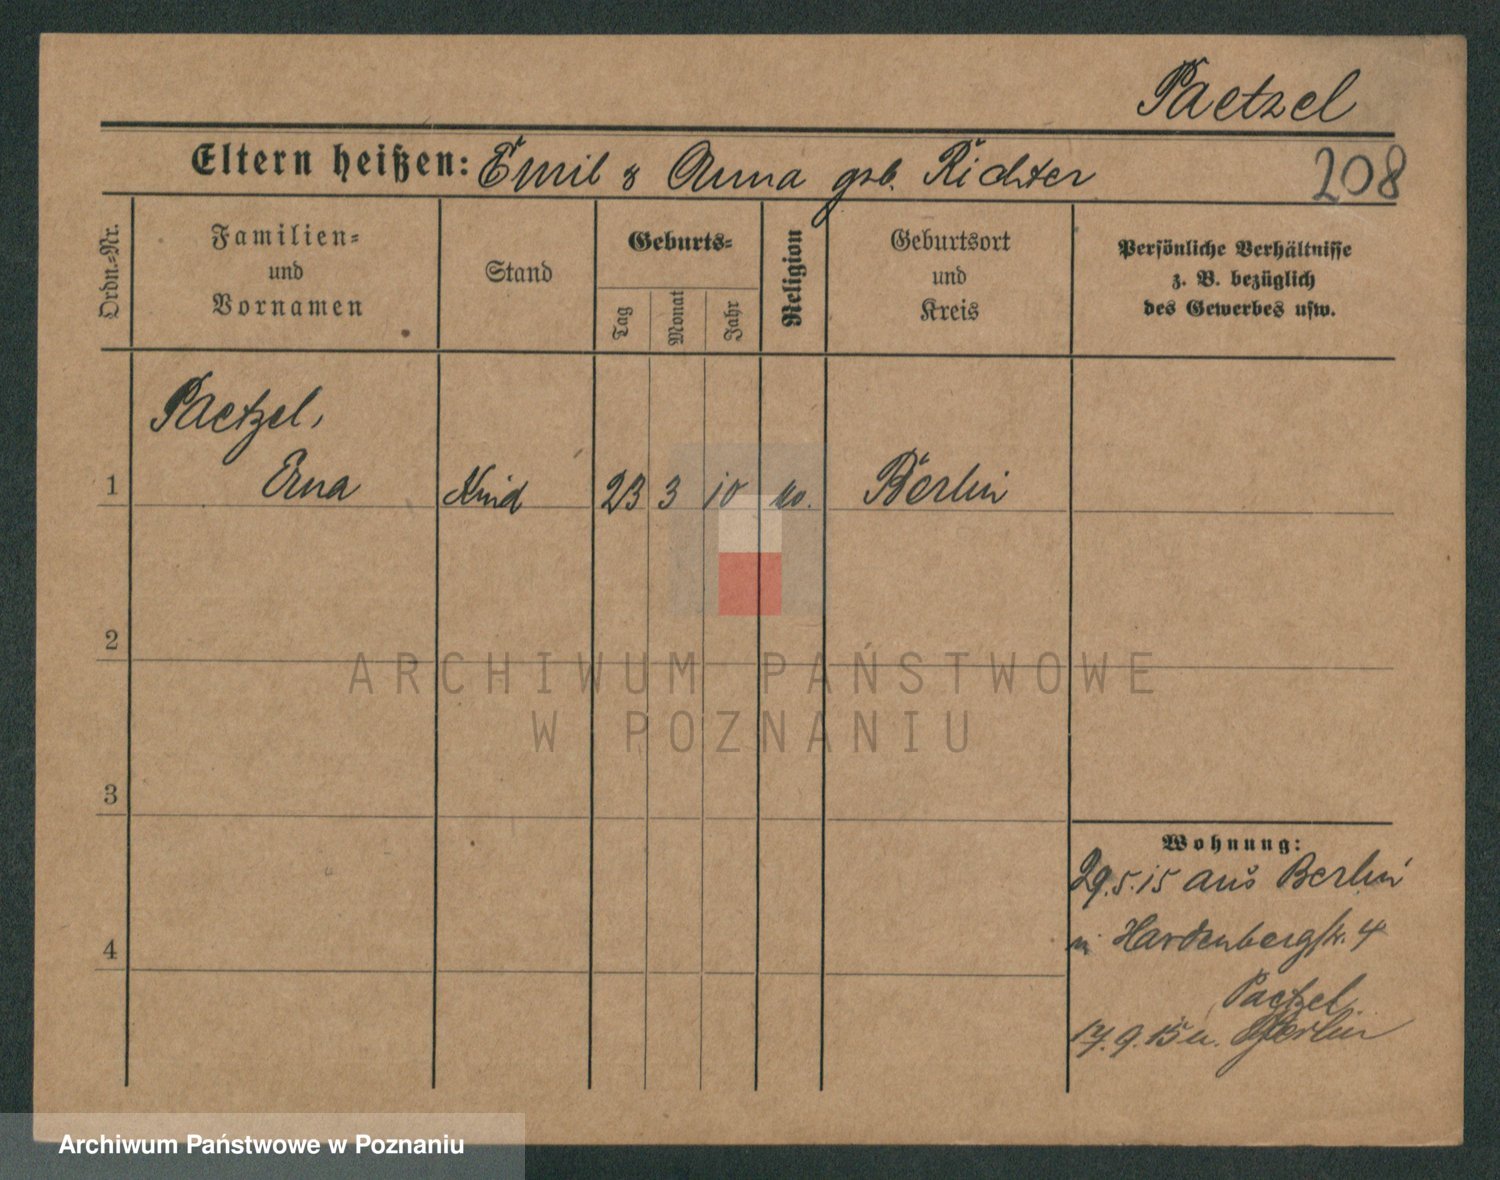 Paetzel
Eltern heißen: Emil & Anna geb. Richter
208
Ordn.-Nr.
Familien-
und
Vornamen
Stand
Geburts-
Tag
Monat
Jahr
Religion
Geburtsort
und
Kreis
Persönliche Verhältnisse
z. B. bezüglich
des Gewerbes usw.
Paetzel,
1 Erna Kind 23 3 10 Berlin
2
3
4
Wohnung:
29.5.15 aus Berlin
in Hardenbergstr. 4
Paetzel
17.9.15 n. Berlin
ARCHIWUM PAŃSTWOWE
W POZNANIU
Archiwum Państwowe w Poznaniu